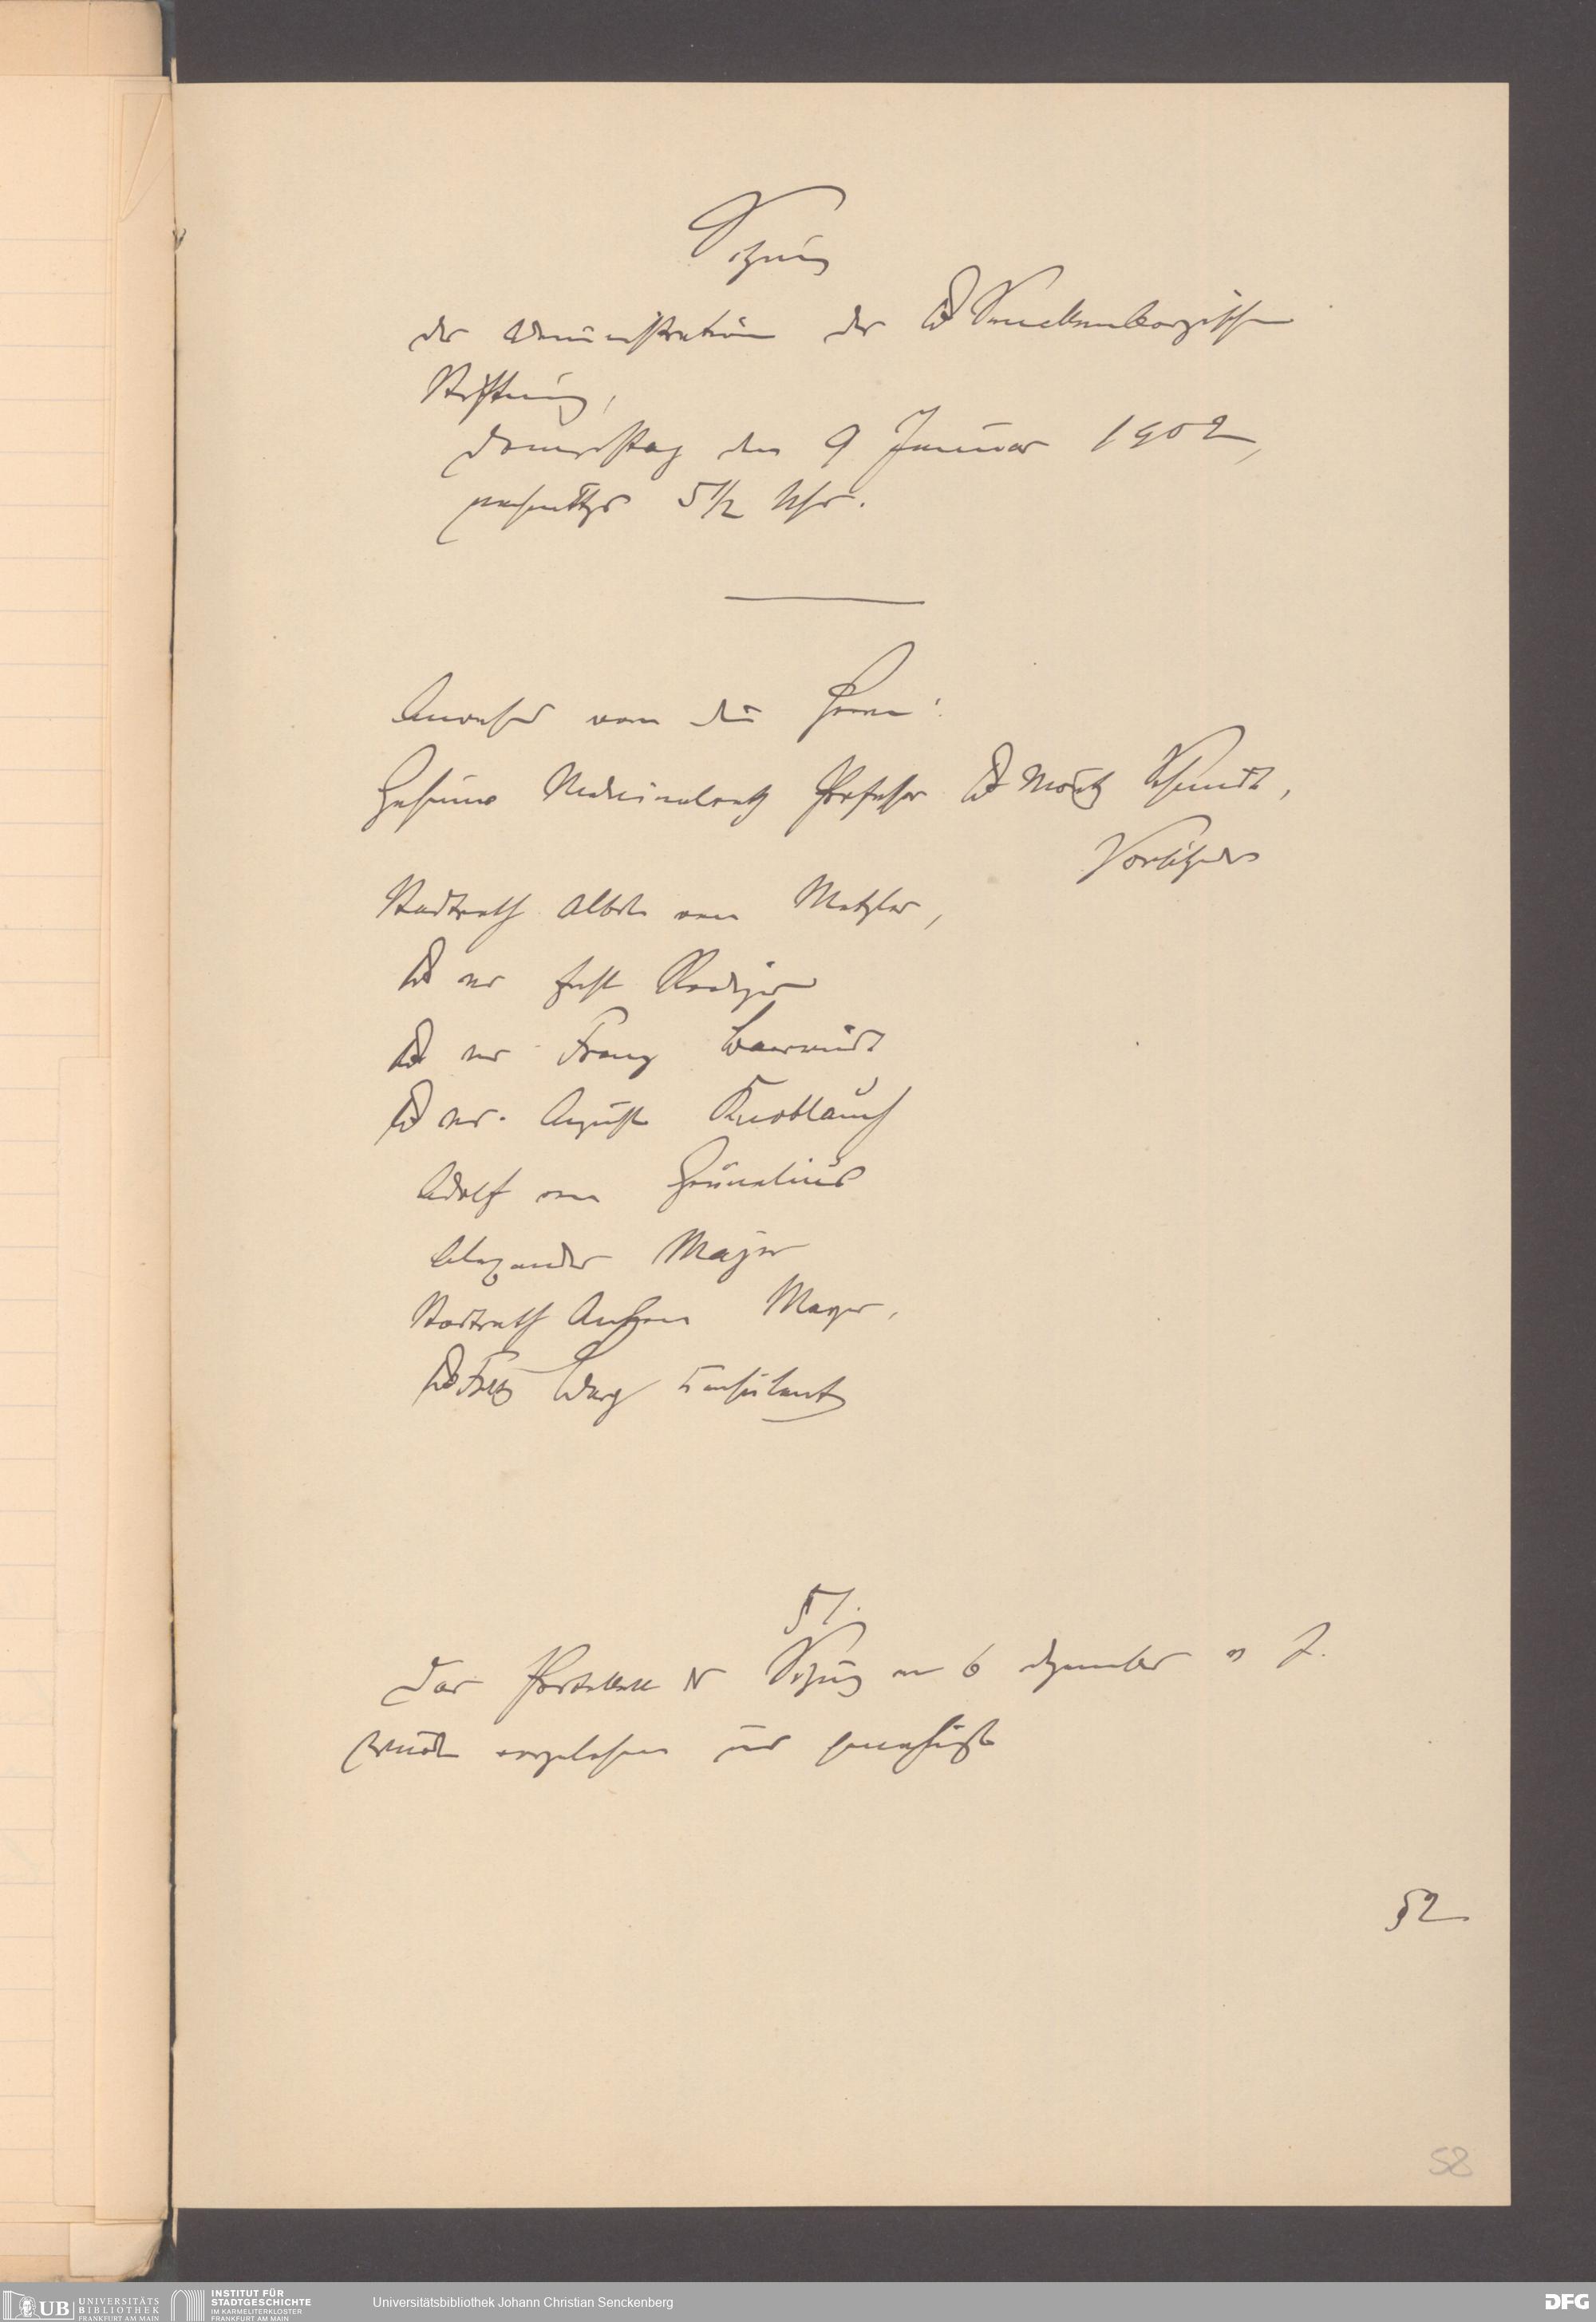 Sitzung
der Administration der Dr Senckenbergischen
Stiftung,
Donnerstag den 9 Januar 1902,
nachmittgs 5 1/2 Uhr.
Anwesend waren die Herren:
Geheimer Medicinalrath Professor Dr Moritz Schmidt,
Vorsitzender
Stadtrath Albert von Metzler,
Dr med Ernst Roediger
Dr med Franz
Dr med. August Knoblauch
Adolf von Grunelius
Alexander Majer
Stadtrath Anton Meyer,
Dr Fritz Berg Consulent
§ 1.
Das Protokoll der Sitzung vom 6 Dezember v J.
wurde vorgelesen und genehmigt
§ 2
58
UB UNIVERSITÄTS
BIBLIOTHEK
FRANKFURT AM MAIN
INSTITUT FÜR
STADTGESCHICHTE
IM KARMELITERKLOSTER
FRANKFURT AM MAIN
Universitätsbibliothek Johann Christian Senckenberg
DFG